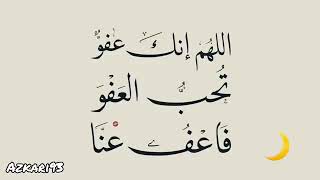 اللهُم إنكَ عَفوٌّ
تُحبُّ العَفْوَ
فَاعْفُ عَنَّا
AZKARI93